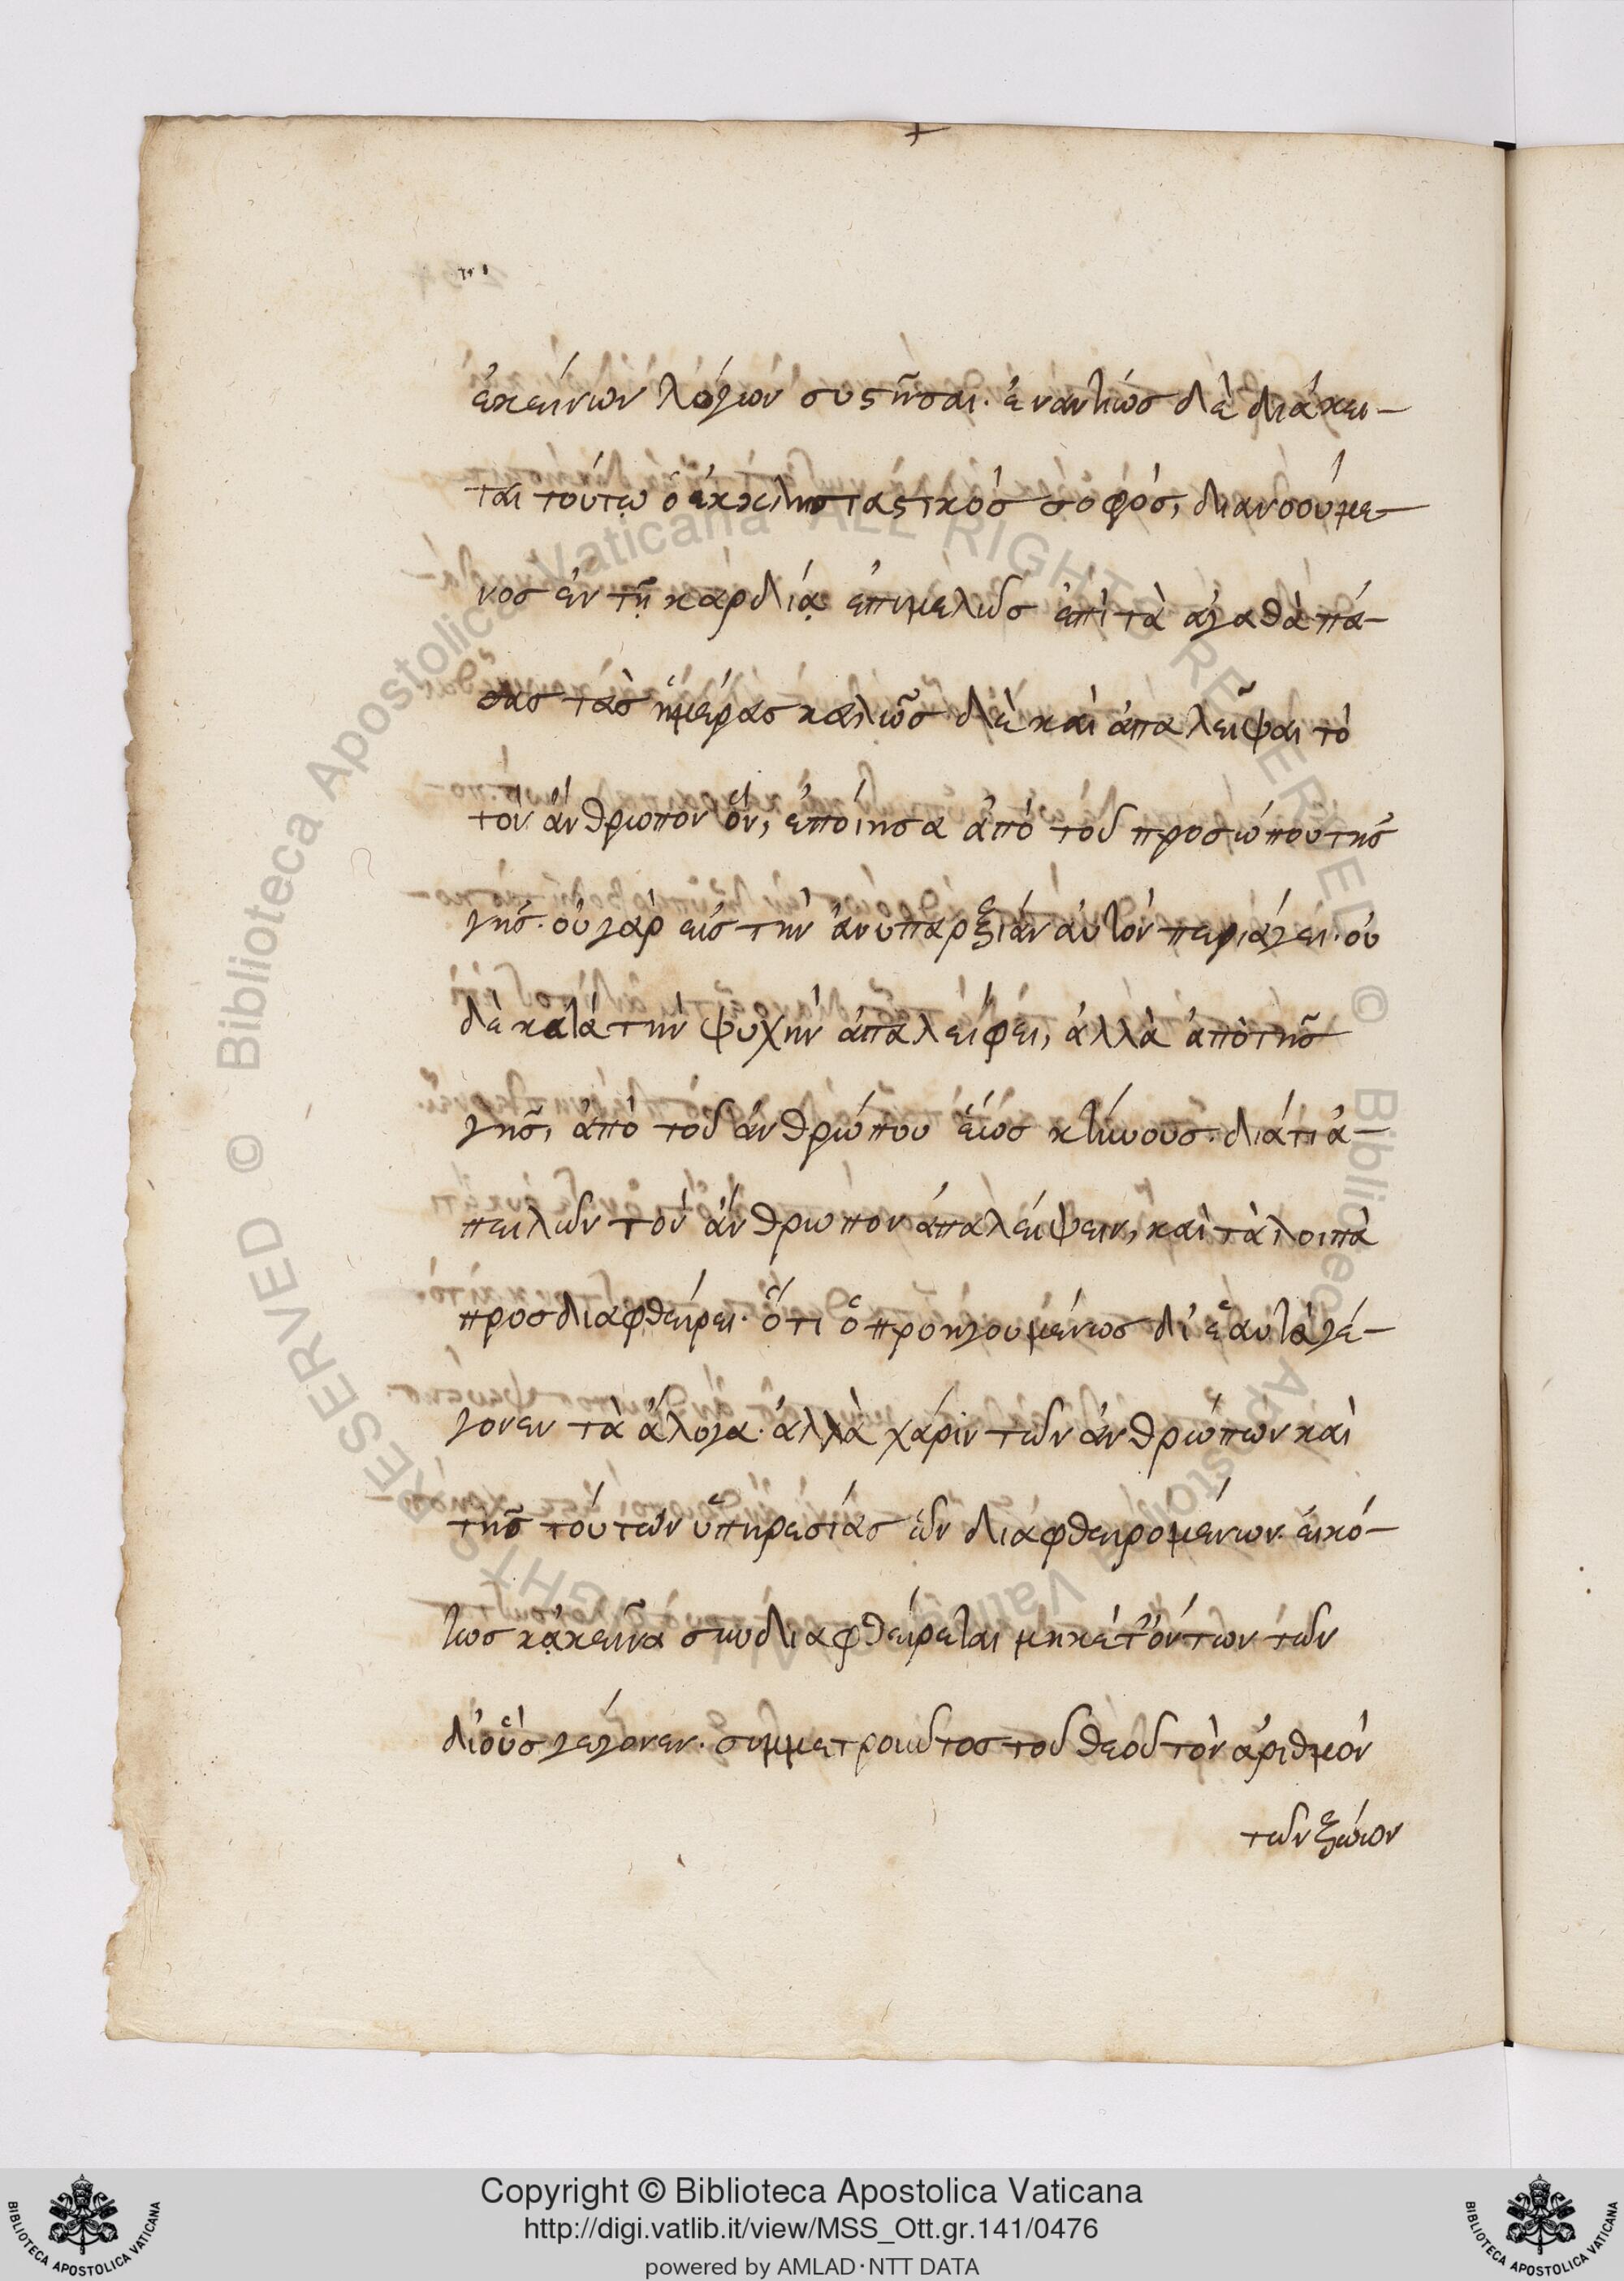 ἐκείνων λόγων συστῆσαι. ἐναντίως δὲ διάκει-
ται τούτω ὁ ἐκκλησιαστικὸς σοφός, διανοούμε-
νος ἐν τῇ καρδίᾳ ἐπιμελῶς ἐπὶ τὰ ἀγαθὰ πά-
σας τὰς ἡμέρας καλῶς δὲ καὶ ἀπαλεῖψαι τὸ
τὸν ἄνθρωπον ὃν, ἐποίησα ἀπὸ τοῦ προσώπου τῆς
γῆς. οὐ γὰρ εἰς τὴν ἀνυπαρξίαν αὐτὸν περιάγει. οὐ
δὲ κατὰ τὴν ψυχὴν ἀπαλείφει, ἀλλὰ ἀπὸ τῆς
γῆς, ἀπὸ τοῦ ἀνθρώπου ἕως κτήνους. διάτι ἀ-
πειλῶν τὸν ἄνθρωπον ἀπαλείψειν, καὶ τὰ λοιπὰ
προσδιαφθείρει. ὅτι ὁ προηγουμένως δι' ἑαυτὰ γέ-
γονεν τὰ ἄλογα. ἀλλὰ χάριν τῶν ἀνθρώπων καὶ
τῆς τούτων ὑπηρεσίας ὧν διαφθειρομένων. εἰκό-
τως κἀκεῖνα συνδιαφθείρεται μηκέτ' ὄντων τῶν
δι' οὓς γέγονεν. συμμετροῦντος τοῦ θεοῦ τὸν ἀριθμὸν
τῶν ζώων
Copyright © Biblioteca Apostolica Vaticana
http://digi.vatlib.it/view/MSS_Ott.gr.141/0476
powered by AMLAD·NTT DATA